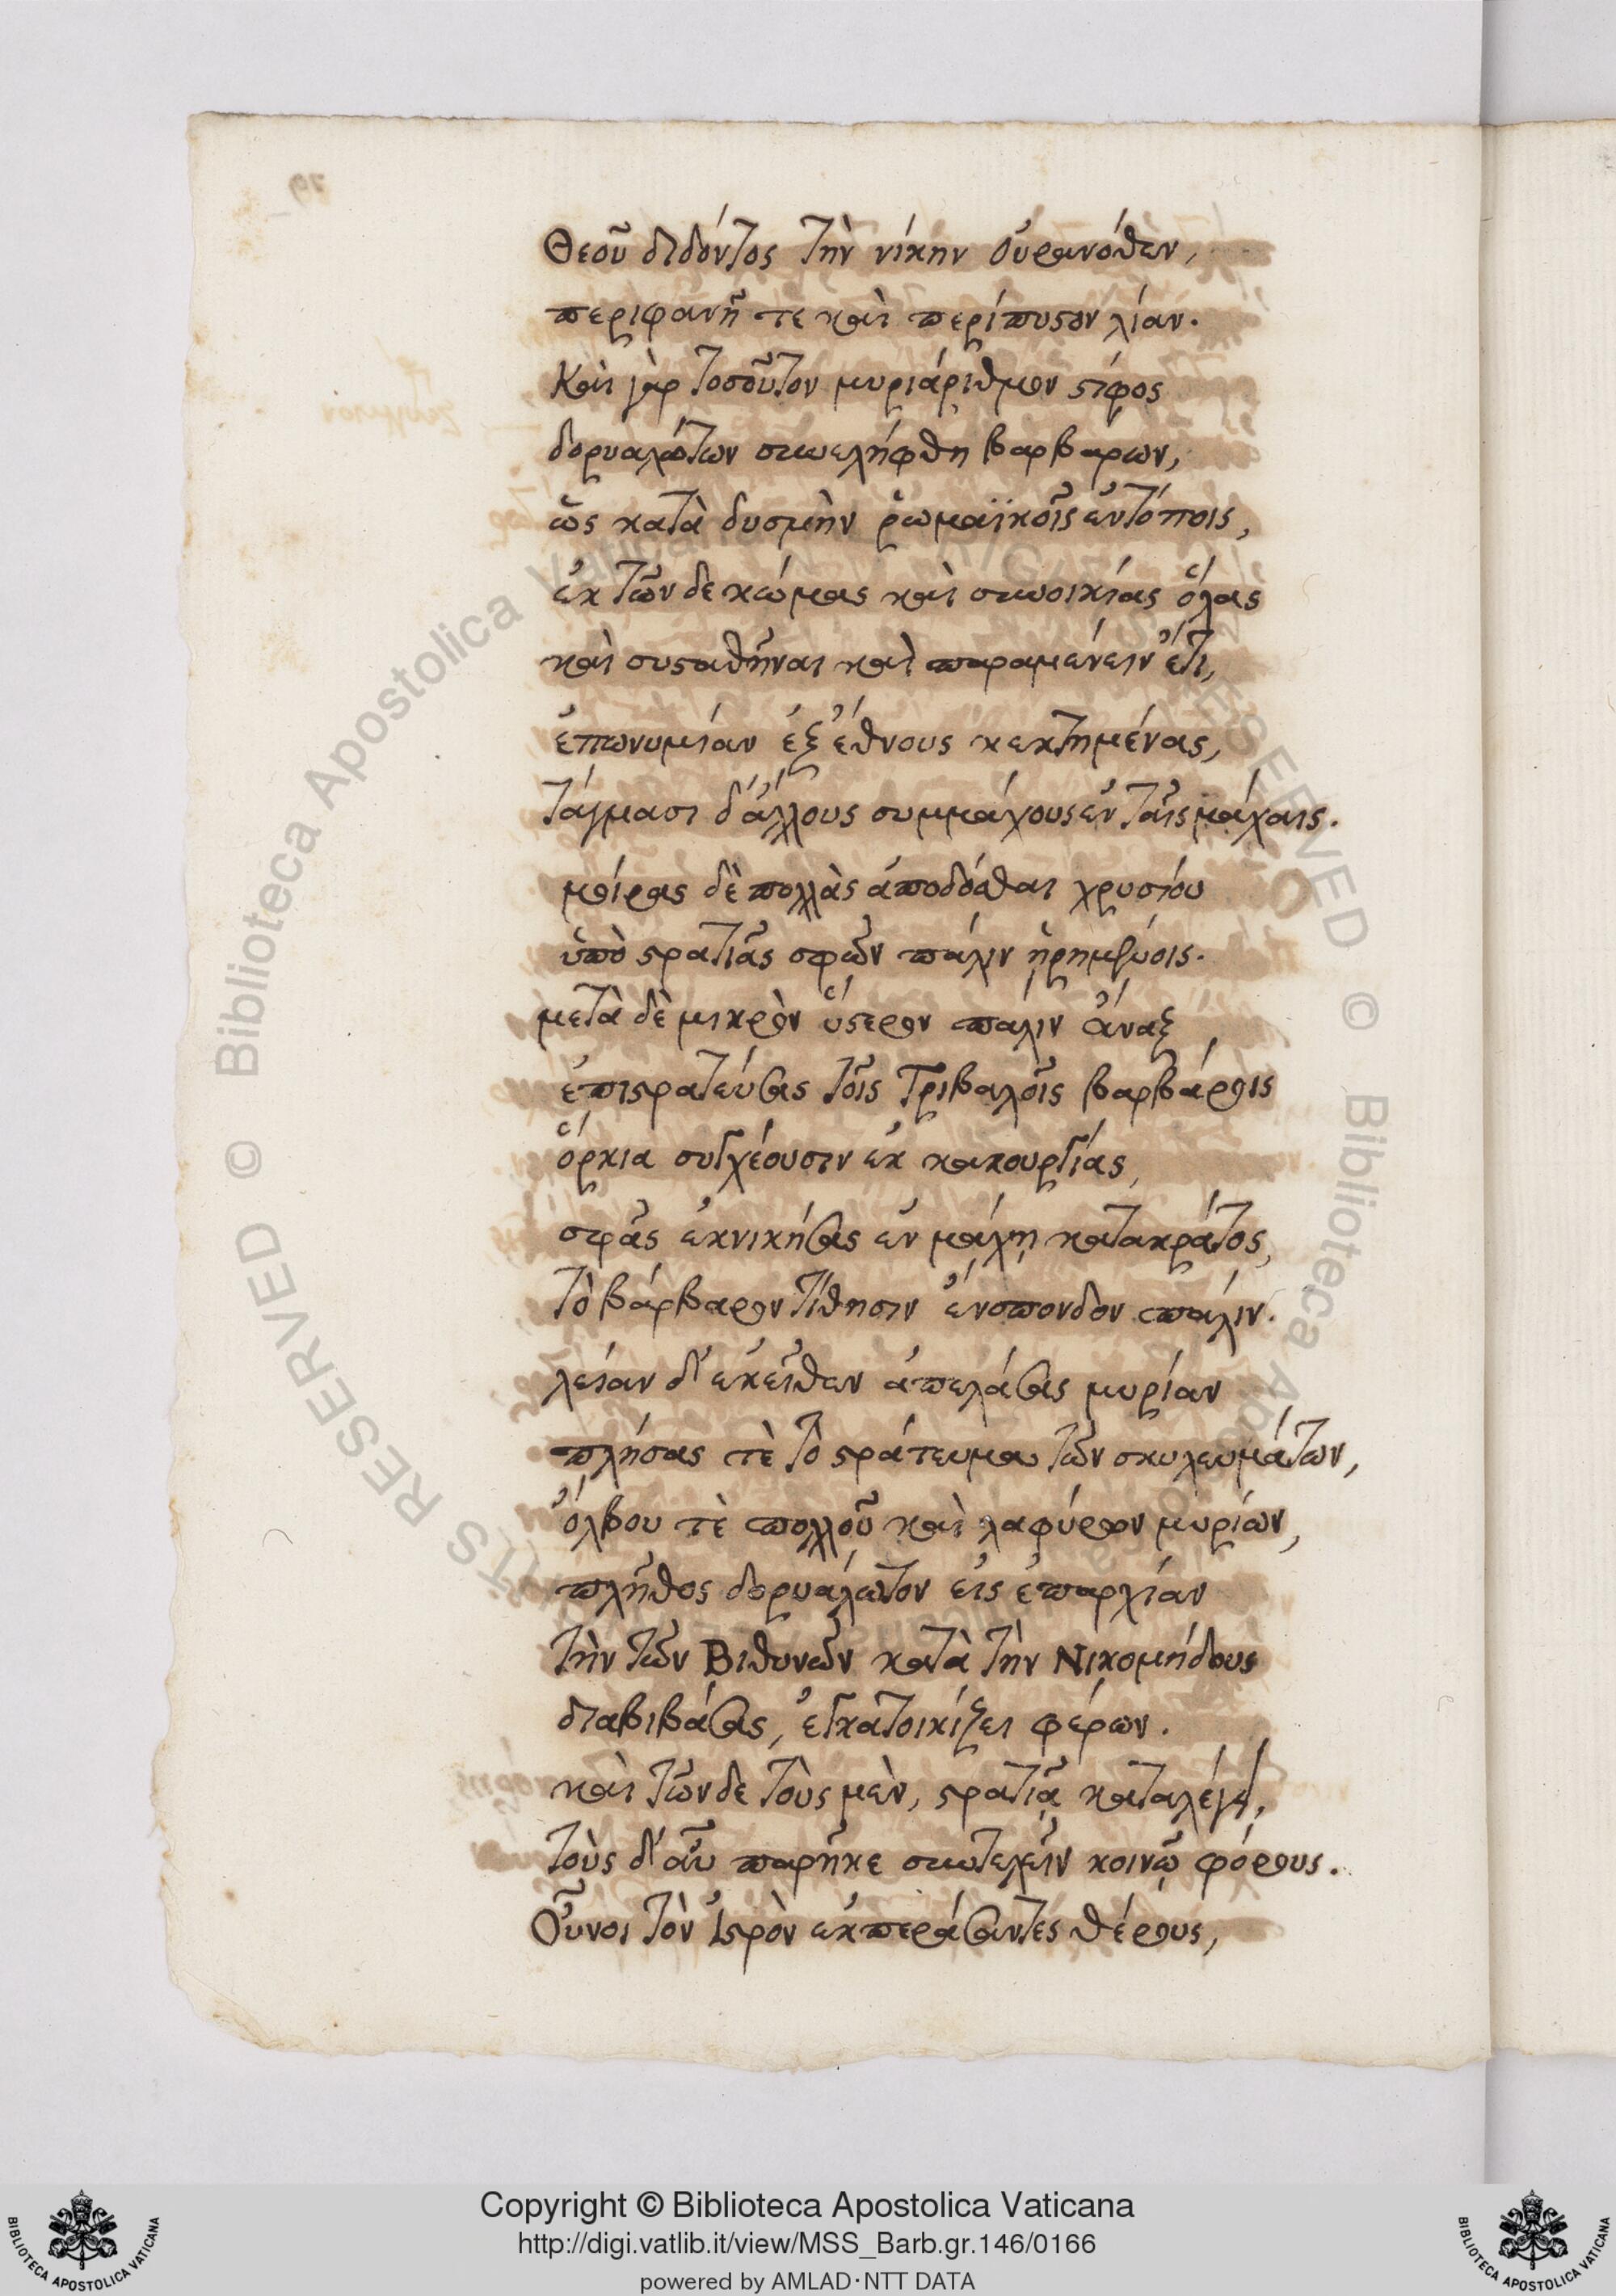 Θεοῦ διδόντος τὴν νίκην Οὐρανόθεν,
περιφανῆ τε καὶ περίπυστον λίαν.
Καὶ γὰρ τοσοῦτον μυριάριθμον στίφος
δορυαλώτων συνελήφθη βαρβάρων,
ὣς κατὰ δυσμὴν ῥωμαϊκοῖς ἐντόποις,
ἐκ τῶνδε κώμας καὶ συνοικίας ὅλας
καὶ συσταθῆναι καὶ παραμένειν ἔτι,
ἐπωνυμίαν ἐξ ἔθνους κεκτημένας,
τάγμασι δ' ἄλλους συμμάχους ἐν ταῖς μάχαις.
μοίρας δὲ πολλὰς ἀποδόσθαι χρυσίου
ὑπὸ στρατιᾶς σφῶν πάλιν ᾑρημένοις.
μετὰ δὲ μικρὸν ὕστερον πάλιν ἄναξ
ἐπιστρατεύσας τοῖς Τριβαλοῖς βαρβάροις
ὅρκια συγχέουσιν ἐκ κακουργίας,
σφᾶς ἐκνικήσας ἐν μάχῃ κατακράτος,
τὸ βάρβαρον τίθησιν ἔνσπονδον πάλιν.
λείαν δ' ἐκεῖθεν ἀπελάσας μυρίαν
πλήσας τὲ τὸ στράτευμα τῶν σκυλευμάτων,
ὄλβου τὲ πολλοῦ καὶ λαφύρων μυρίων,
πλῆθος δορυάλωτον εἰς ἐπαρχίαν
τὴν τῶν Βιθυνῶν κατὰ τὴν Νικομήδους
διαβιβάσας, ἐγκατοικίζει φέρων.
καὶ τῶνδε τοὺς μὲν, στρατιᾷ καταλέγει,
τοὺς δ' αὖ παρῆκε συντελεῖν κοινῷ φόρους.
Οὖννοι τὸν Ἰστρὸν ἐκπεράσαντες θέρους,
Copyright © Biblioteca Apostolica Vaticana
http://digi.vatlib.it/view/MSS_Barb.gr.146/0166
powered by AMLAD·NTT DATA